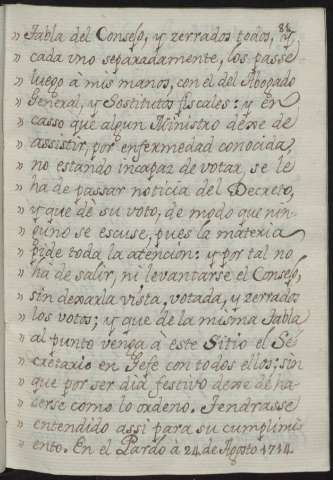 88
» Tabla del Consejo, y zerrados todos, y
» cada vno separadamente, los passe
» luego à mis manos, con el del Abogado
» General, y Sostitutos fiscales: y en
» casso que algun Ministro dexe de
» assistir, por enfermedad conocida,
» no estando incapaz de votar, se le
» ha de passar noticia del Decreto,
» y que dè su voto, de modo que nin-
» guno se escuse, pues la materia
» pide toda la atencion: y por tal no
» ha de salir, ni levantarse el Consejo,
» sin dexarla vista, votada, y zerrados
» los votos; y que de la misma Tabla
» al punto venga à este Sitio el Se-
» cretario en Gefe con todos ellos: sin
» que por ser dia festivo dexe de ha-
» cerse como lo ordeno. Tendrasse
» entendido assi para su cumplimi-
» ento. En el Pardo à 24 de Agosto 1714.